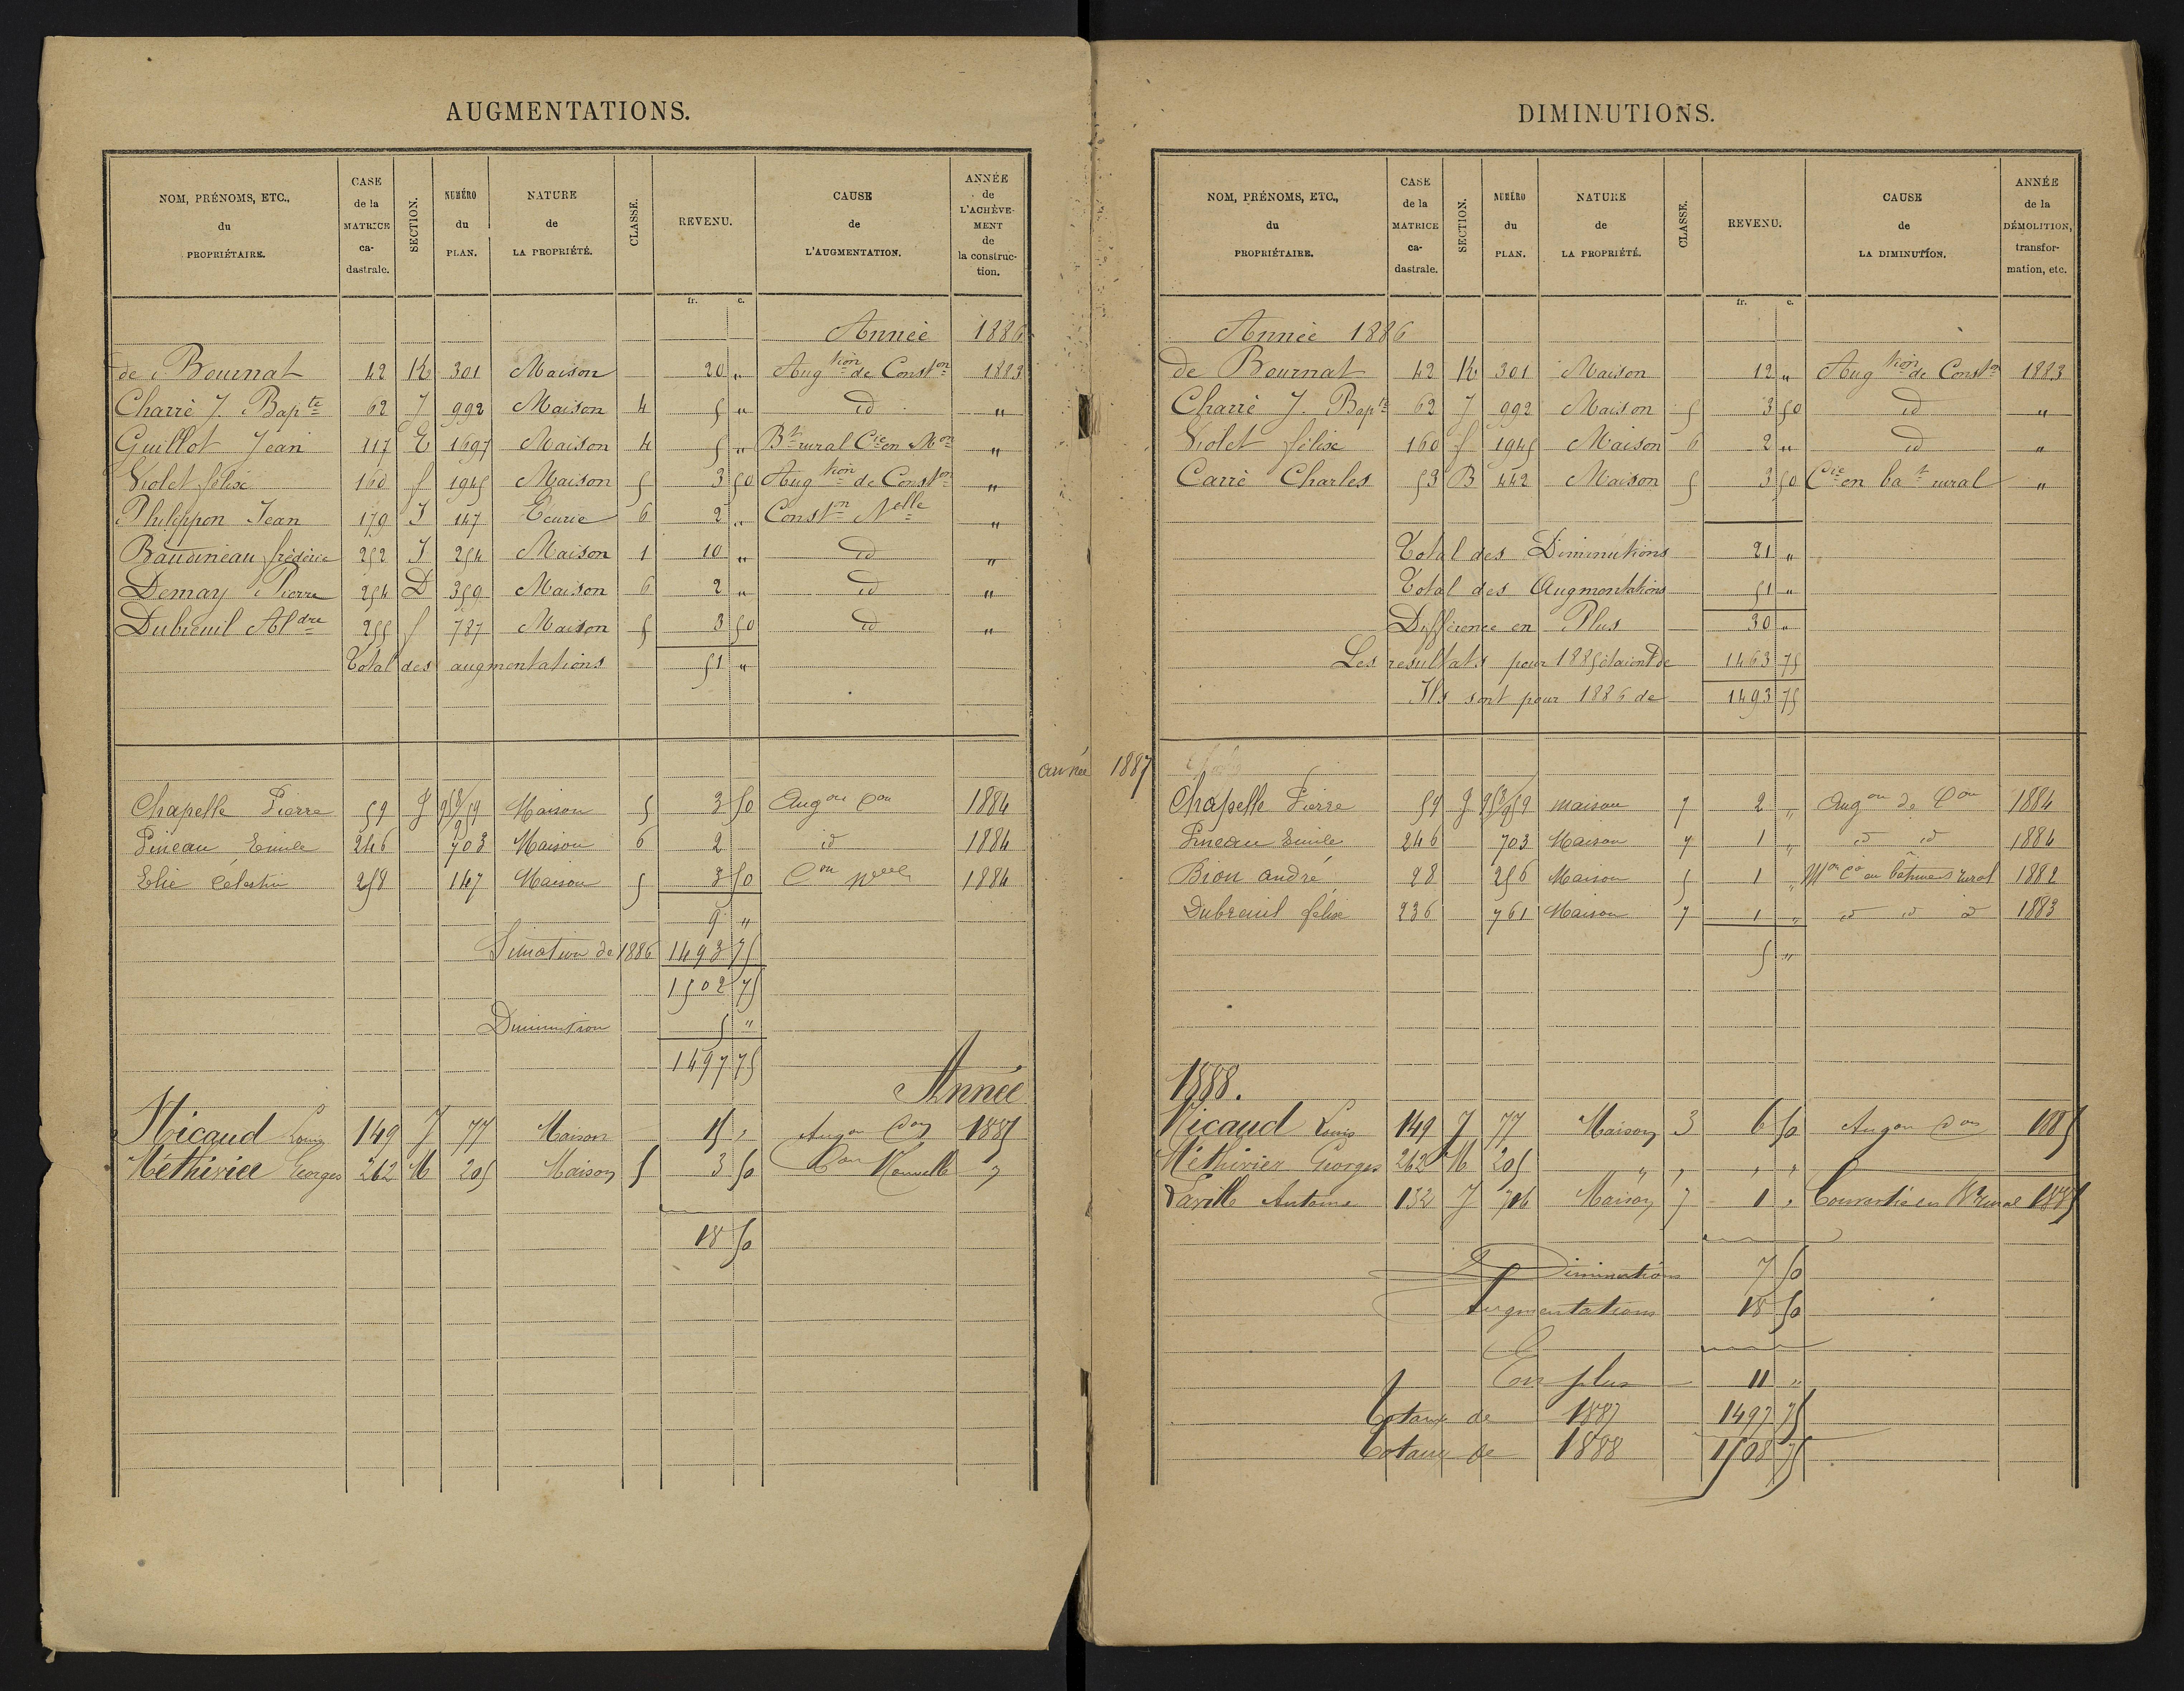 AUGMENTATIONS.
NOM, PRÉNOMS, ETC., du PROPRIÉTAIRE. CASE de la MATRICE ca-dastrale. SECTION. NUMÉRO du PLAN. NATURE de LA PROPRIÉTÉ. CLASSE. REVENU. CAUSE de L'AUGMENTATION. ANNÉE de L'ACHÈVE-MENT de la construc-tion.
fr. c.
Année 1886
de Bournat 42 K 301 Maison 20 " Augtion de Conston 1883
Charré J. Bapte 62 J 992 Maison 4 5 " id "
Guillot Jean 117 E 1697 Maison 4 5 " Bt rural Cie en Mon "
Violet félix 160 f 1945 Maison 5 3 50 Augtion de Conston "
Philippon Jean 179 I 147 Ecurie 6 2 " Constn Nelle "
Baudineau frédéric 252 I 254 Maison 1 10 " id "
Demay Pierre 254 D 359 Maison 6 2 " id "
Dubreuil Aldre 255 f 787 Maison 5 3 50 id "
Total des augmentations 51 "
année 1887
Chapelle Pierre 59 J 958/959 Maison 5 3 50 Augon Con 1884
Pineau Emile 246 703 Maison 6 2 id 1884
Elie Célestin 258 147 Maison 5 3 50 Con Nelle 1884
9 "
Situation de 1886 1493 75
1502 75
Diminution 5 "
1497 75
Année
Micaud Louis 149 J 77 Maison 15 " Augon Con 1885
Méthivier Georges 262 M 205 Maison 5 3 50 Con Nouvelle "
18 50
DIMINUTIONS.
NOM, PRÉNOMS, ETC., du PROPRIÉTAIRE. CASE de la MATRICE ca-dastrale. SECTION. NUMÉRO du PLAN. NATURE de LA PROPRIÉTÉ. CLASSE. REVENU. CAUSE de LA DIMINUTION. ANNÉE de la DÉMOLITION, transfor-mation, etc.
fr. c.
Année 1886
de Bournat 42 K 301 Maison 12 " Augtion de Conston 1883
Charré J. Bapte 62 J 992 Maison 5 3 50 id "
Violet félix 160 f 1945 Maison 6 2 " id "
Carré Charles 53 B 442 Maison 5 3 50 Cie en bat rural "
Total des Diminutions 21 "
Total des Augmentations 51 "
Différence en Plus 30 "
Les resultats pour 1885 étaient de 1463 75
Ils sont pour 1886 de 1493 75
Chapelle Pierre 59 J 958/959 maison 7 2 " Augon de Con 1884
Pineau Emile 246 703 Maison 7 1 " id id 1884
Bion andré 28 256 Maison 5 1 " Mon Cie en bâtiment rural 1882
Dubreuil félix 236 761 Maison 7 1 " id id id 1883
5 "
1888.
Micaud Louis 149 J 77 Maison 3 6 50 Augon Con 1885
Méthivier Georges 262 M 205 " " " "
Laville Antoine 132 J 716 Maison 7 1 " Convertie en Bt rural 1885
Diminutions 7 50
Augmentations 18 50
En plus 11 "
Totaux de 1887 1497 75
Totaux de 1888 1508 75